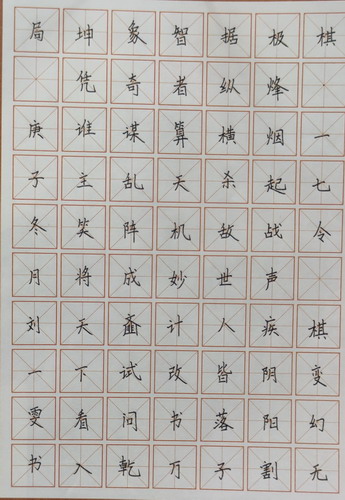 棋 一七令 棋变幻无
极烽烟起战声疾阴阳割
据纵横杀敌世人皆落子
智者算天机妙计改书万
象奇谋乱阵成齑试问乾
坤凭谁主笑将天下看入
局 庚子冬月刘一雯书